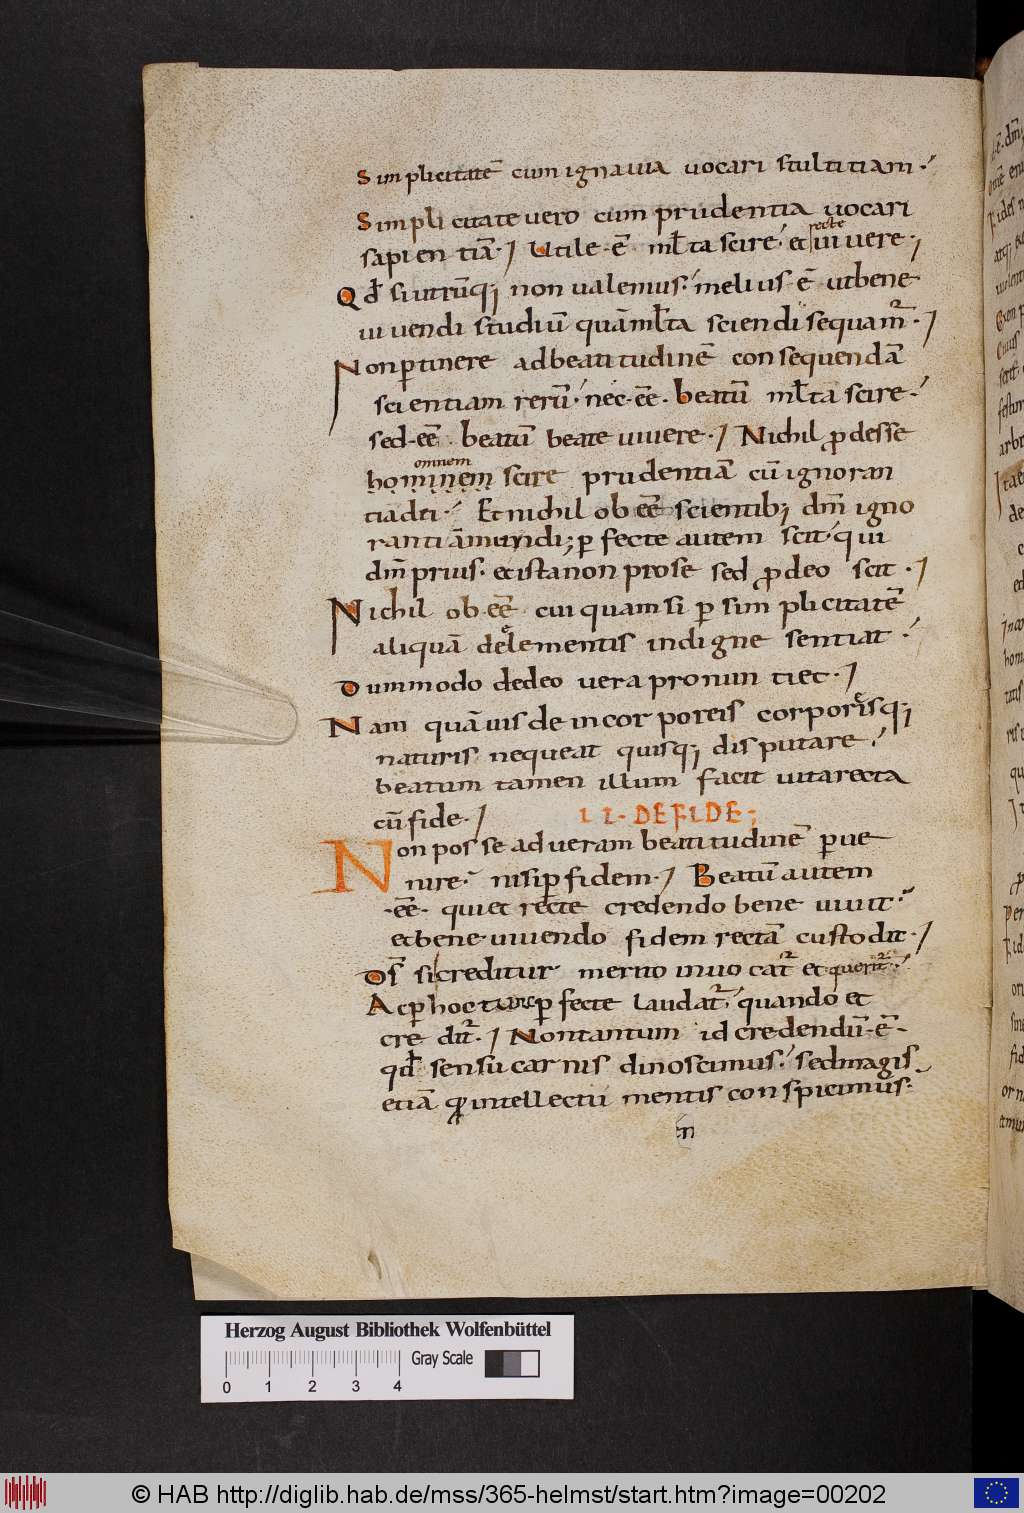 Simplicitatē cum ignauia uocari stultitiam.
Simplicitate uero cum prudentia uocari
recte
sapientiā. Utile ē ml̄ta scire et uiuere.
Qd̄ si utrūq; non ualemus. melius ē ut bene
uiuendi studiū quā ml̄ta sciendi sequam̄.
Non ꝑtinere ad beatitudinē consequendā
scientiam rerū. nec eē. beatū ml̄ta scire.
sed eē. beatū beate uiuere. Nichil ꝓdesse
omnem
hominem scire prudentiā cū ignoran
tia dei. Et nichil obeē scientib; dm̄ igno
rantiā mundi; ꝑfecte autem scit qui
dm̄ prius. et ista non pro se sed ꝓ deo scit.
Nichil obeē cuiquam si ꝑ simplicitatē
aliquā de elementis indigne sentiat.
Dummodo de deo uera pronuntiet.
Nam quāuis de incorporeis corporeisq;
naturis nequeat quisq; disputare.
beatum tamen illum facit uita recta
cū fide. II. DE FIDE;
Non posse ad ueram beatitudinē ꝑue
nire. nisi ꝑ fidem. Beatū autem
eē. qui et recte credendo bene uiuit.
et bene uiuendo fidem rectā custodit.
Ds̄ si creditur merito inuocat̄ et querit̄.
Ac ꝑ hoc tunc ꝑfecte laudat̄. quando et
credit̄. Non tantum id credendū ē
qd̄ sensu carnis dinoscimus. sed magis
etiā qd̄ intellectu mentis conspicimus.
Herzog August Bibliothek Wolfenbüttel
Gray Scale
0 1 2 3 4
© HAB http://diglib.hab.de/mss/365-helmst/start.htm?image=00202